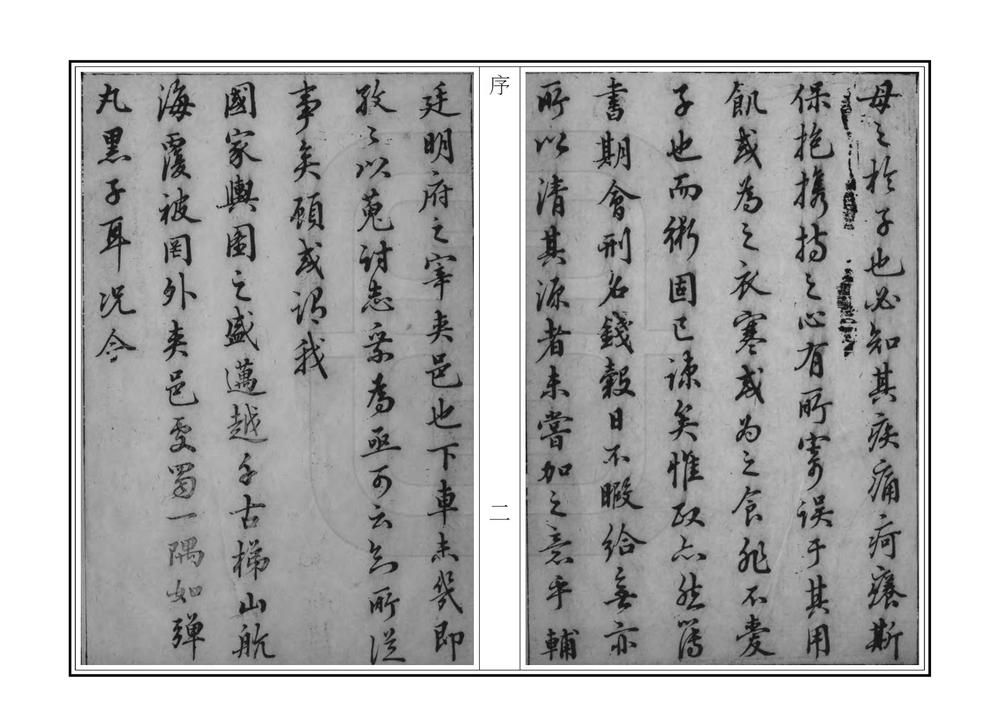 母之於子也必知其疾痛疴癢斯
保抱攜持之心有所寄誤于其用
飢或為之衣寒或為之食非不愛
子也而術固已疎矣惟政亦然簿
書期會刑名錢穀日不暇給無亦
所以清其源者未嘗加之意乎輔
廷明府之宰夾邑也下車未幾即
孜之以蒐討志乘為亟可云知所從
事矣顧或謂我
國家輿圖之盛邁越千古梯山航
海覆被罔外夾邑雯蜀一隅如彈
丸黑子耳況今
序
二